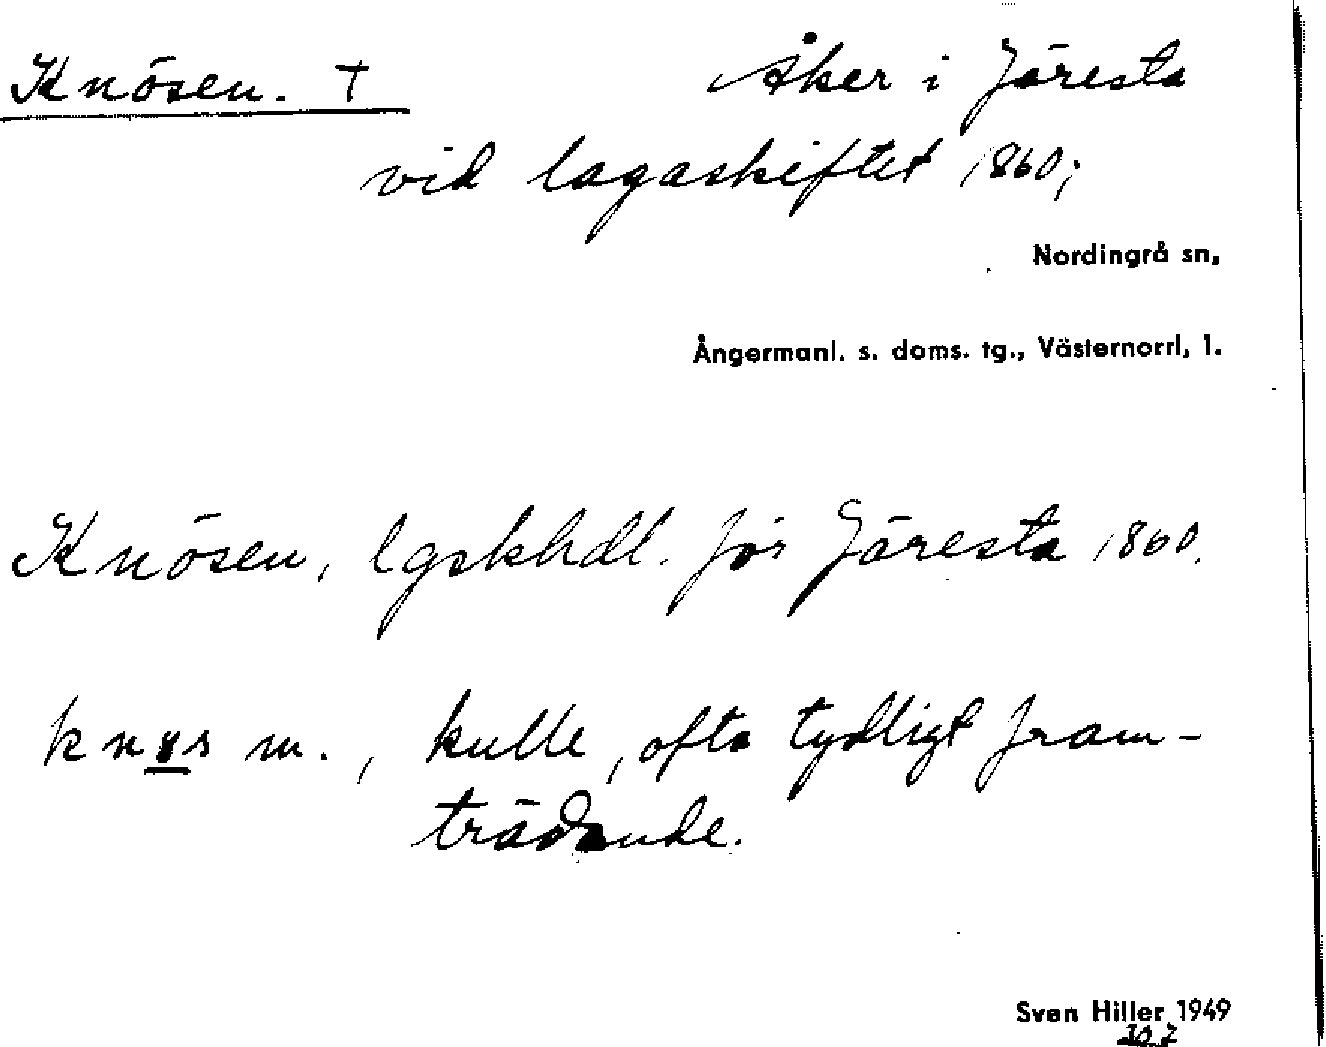 Knösen. † Åker i Järesta
vid lagaskiftet 1860;
Nordingrå sn,
Ångermanl. s. doms. tg., Västernorrl, l.
Knösen, lgskhdl. för Järesta 1860.
m., kulle, ofta tydligt fram-
trädande.
Sven Hiller 1949